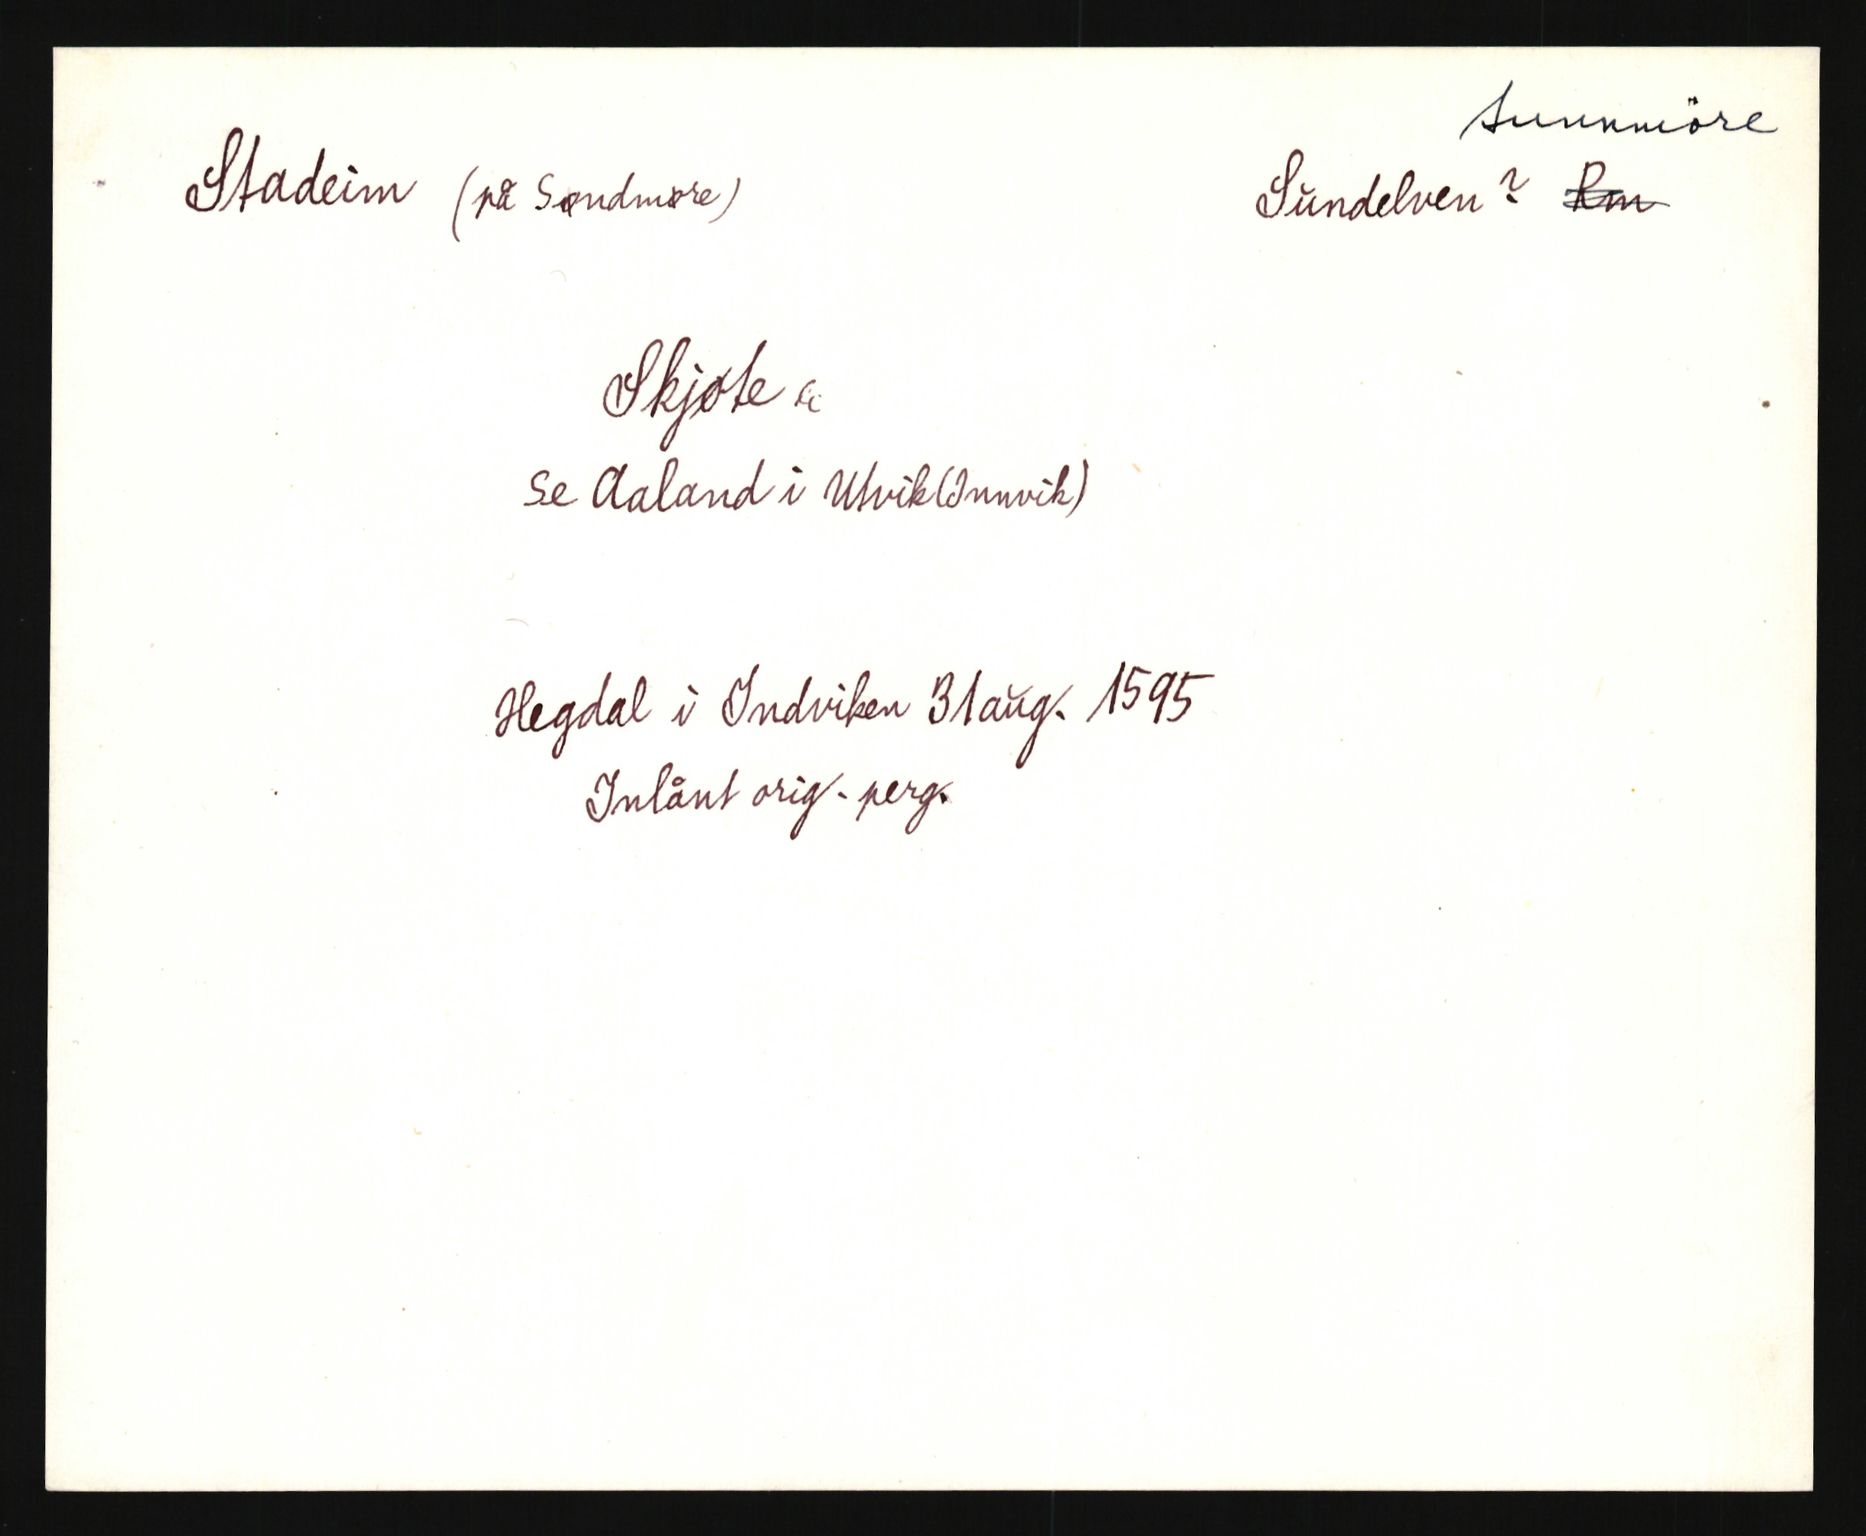 Sunnmöre
Stadeim (på Søndmøre) Sŭndelven? Rm
Skjøte
se Aaland i Utvik (Innvik)
Hegdal i Indviken 31 aŭg. 1595
Inlånt orig. perg.